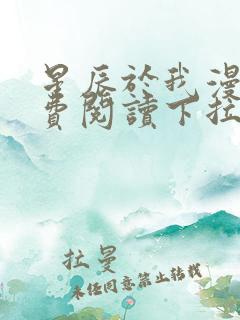 星辰於我漫
費閱讀下拉
拉曼
未经同意禁止转载